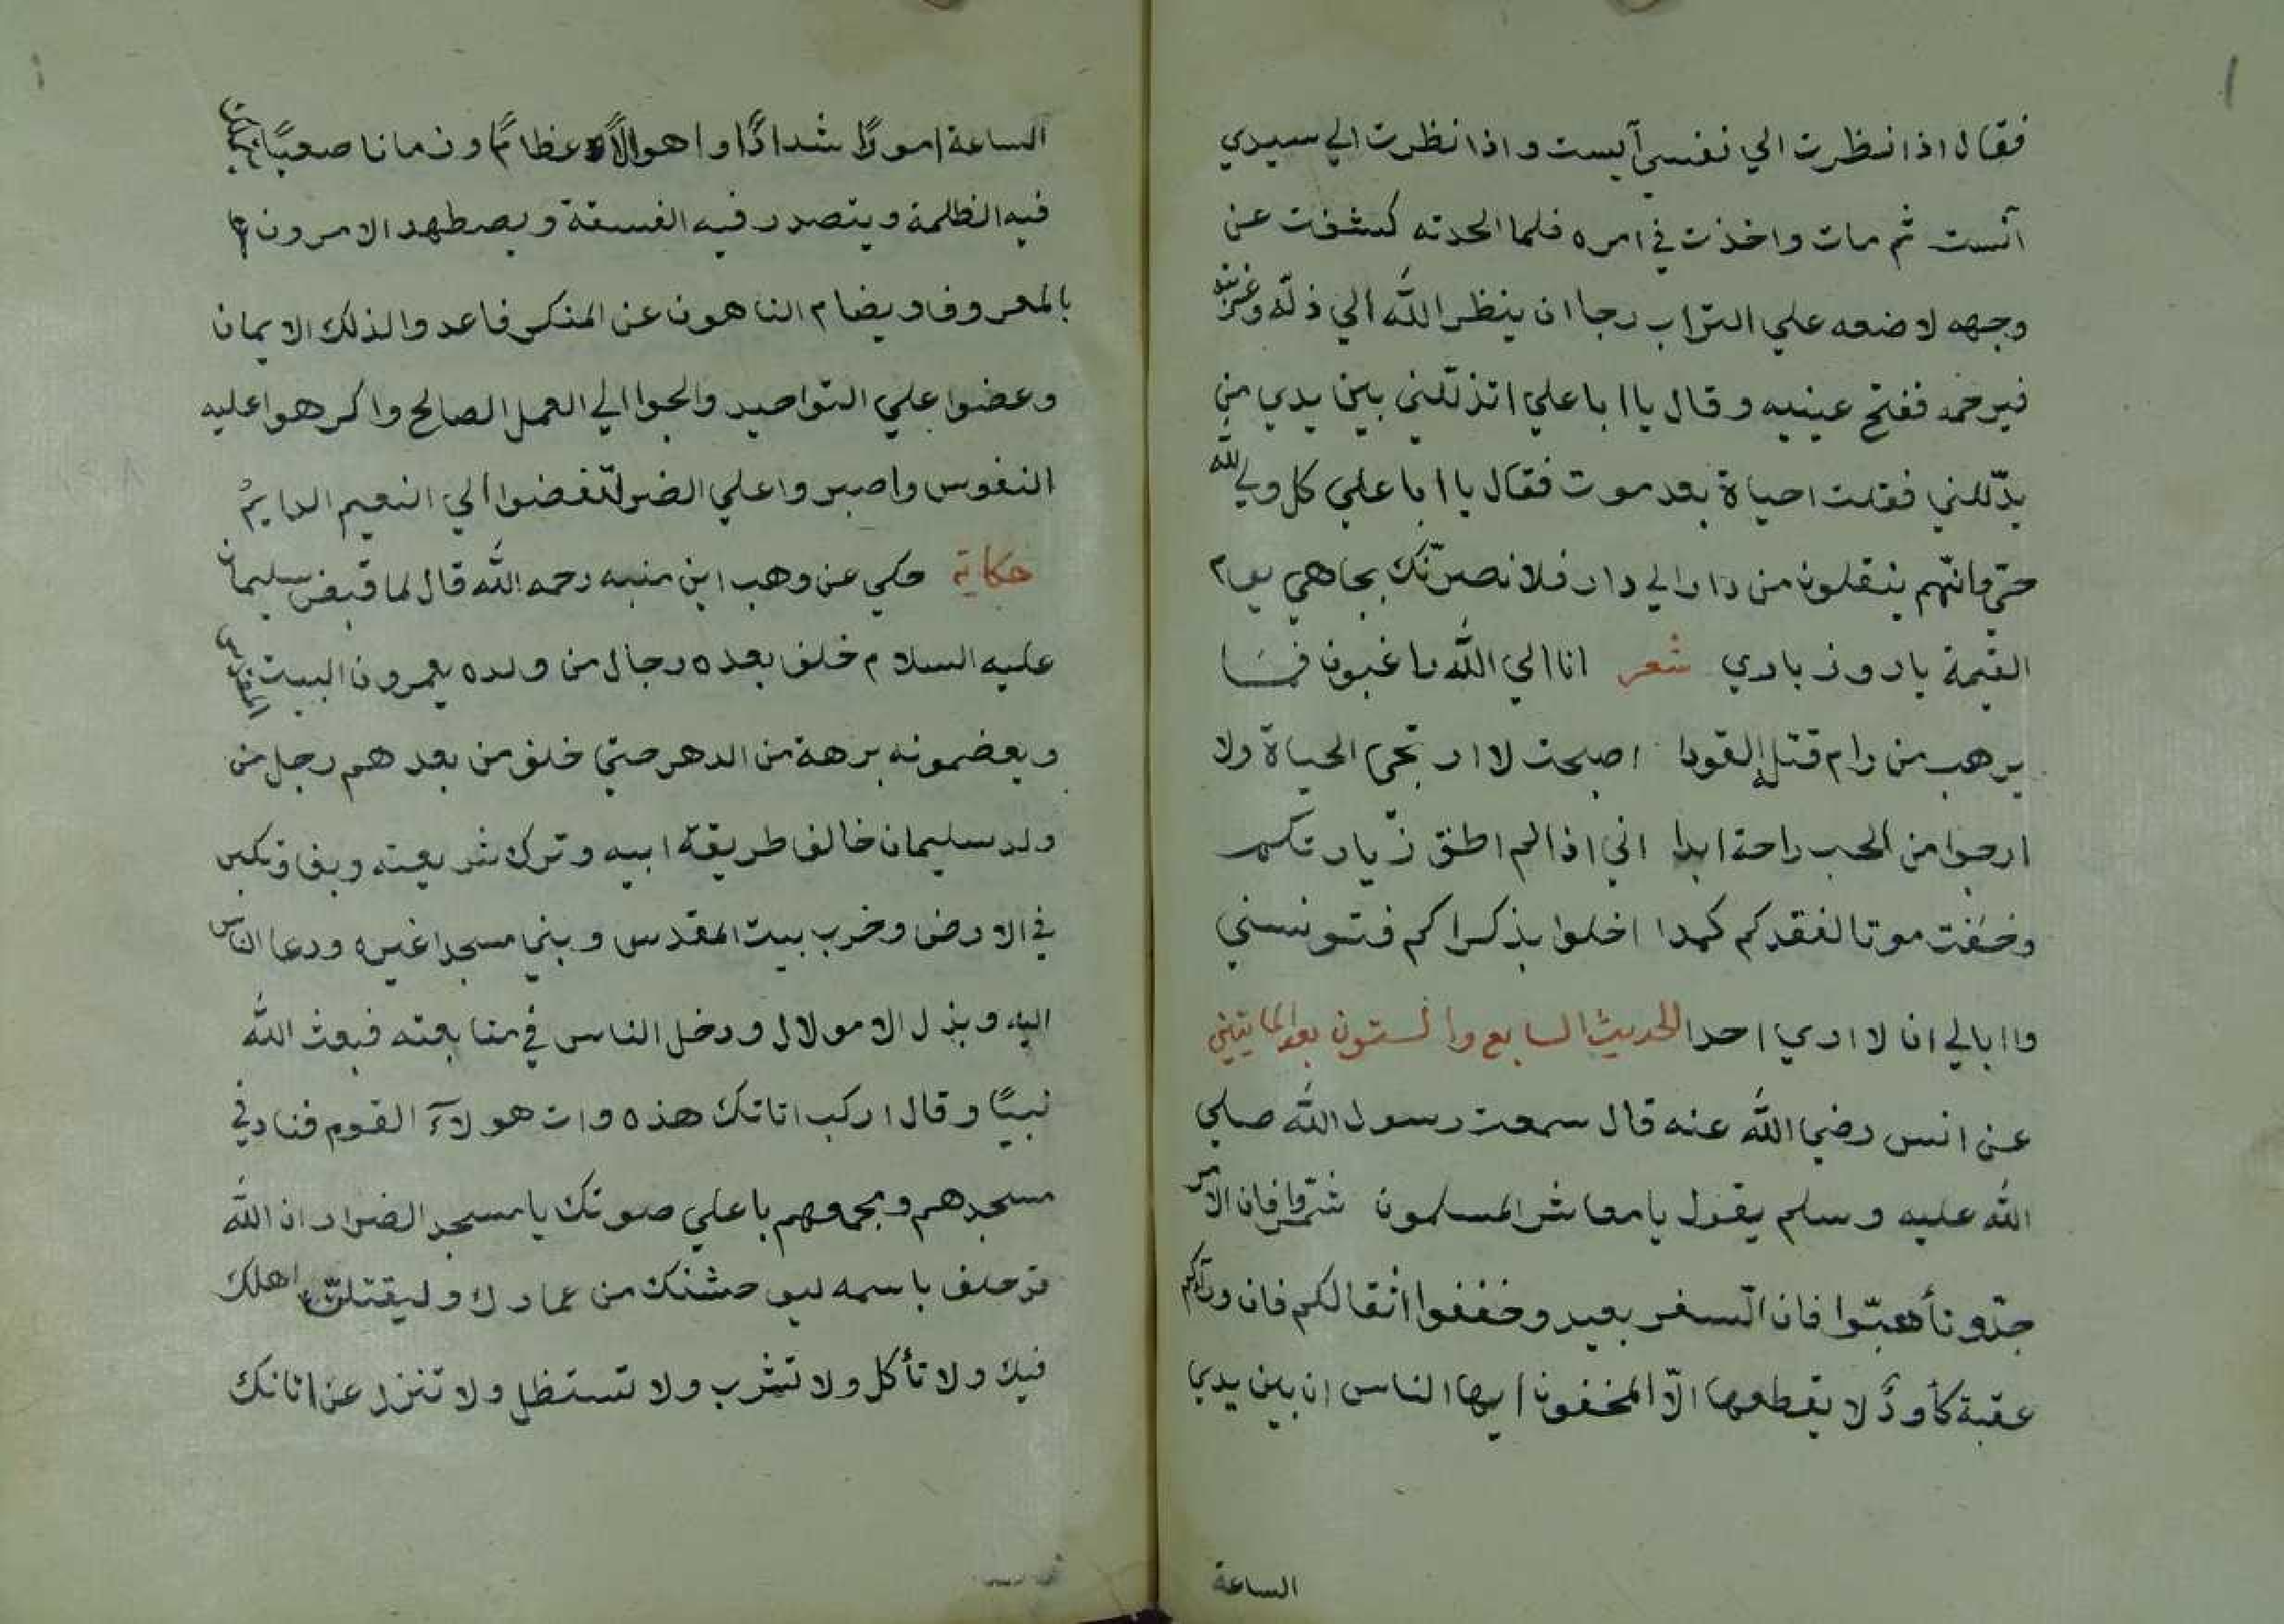 فقال اذا نظرت الي نفسي آيست واذا نظرت الي سيدي
آنست ثم مات واخذت في امره فلما الحدته كشفت عن
وجهه لاضعه علي التراب رجا ان ينظر الله الي ذلّه وغربته
فيرحمه ففتح عينيه وقال يا ابا علي اتذلّلني بين يدي من
يدّللني فقلت احياة بعد موت فقال يا ابا علي كل ولي لله
حيّ وانّهم ينقلون من دار الي دار فلا نصرنّك بجاهي يوم
القيمة يا روزبادي شعر انا الي الله ما غبون فما
يرهب من رام قتله القودا اصبحت لا ارتجي الحياة ولا
ارجوا من الحب راحة ابدا اني اذا لم اطق زيارتكم
وخفت موتا لفقدكم كمدا اخلوا بذكراكم فتونسني
وا ابالي ان لا اري احدا الحديث السابع والستون بعد المايتين
عن انس رضي الله عنه قال سمعت رسول الله صلي
الله عليه وسلم يقول يا معاشر المسلمون شمّروا فان الامر
جدّ وتأهبّوا فان السفر بعيد وخففوا اثقالكم فان ورآءكم
عقبة كأودٌ لا يقطعها الّا المخففون ايها الناس ان بين يدي
الساعة
الساعة امورًا شدادًا واهوالًا عظائمًا وزمانا صعبًا
فيه الظلمة ويتصدر فيه الفسقة ويصطهد الامرون
بالمعروف ويضام الناهون عن المنكر فاعدوا لذلك الايمان
وعضوا علي التواحيد والجوا الي العمل الصالح واكرهوا عليه
النفوس واصبروا علي الضر لتفضوا الي النعيم الدايم
حكاية حكي عن وهب ابن منبه رحمه الله قال لما قبض سليمان
عليه السلام خلف بعده رجال من ولده يعمرون البيت المقدس
ويعضمونه برهة من الدهر حتي خلف من بعدهم رجل من
ولد سليمان خالف طريقة ابيه وترك شريعته وبغا وتكبر
في الارض وخرب بيت المقدس وبني مسجدا غيره ودعا الناس
اليه وبذل الامولال ودخل الناس في متابعته فبعث الله
نبيًا وقال اركب اتانك هذه وات هولآء القوم فناد في
مسجدهم ومجمعهم باعلي صوتك يا مسجد الضرار ان الله
قد حلف باسمه ليوحشنك من عمارك وليقتلنّ اهلك
فيك ولا تأكل ولا تشرب ولا تستظل ولا تنزل عن اتانك